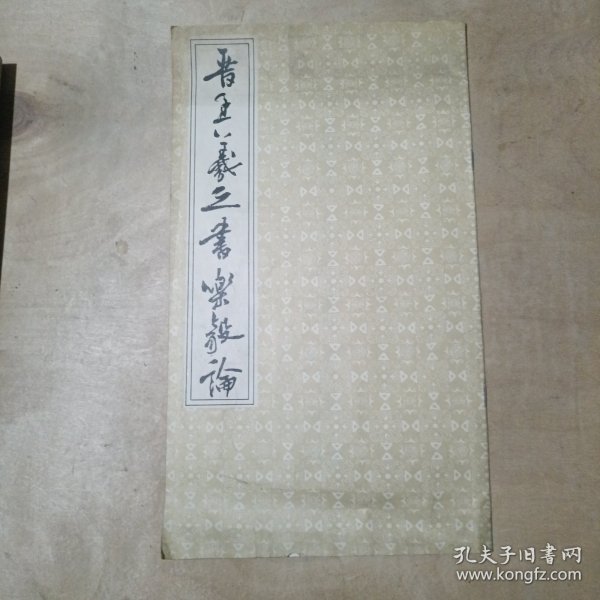 晋王羲之書樂毅論
孔夫子旧书网
www.kongfz.com